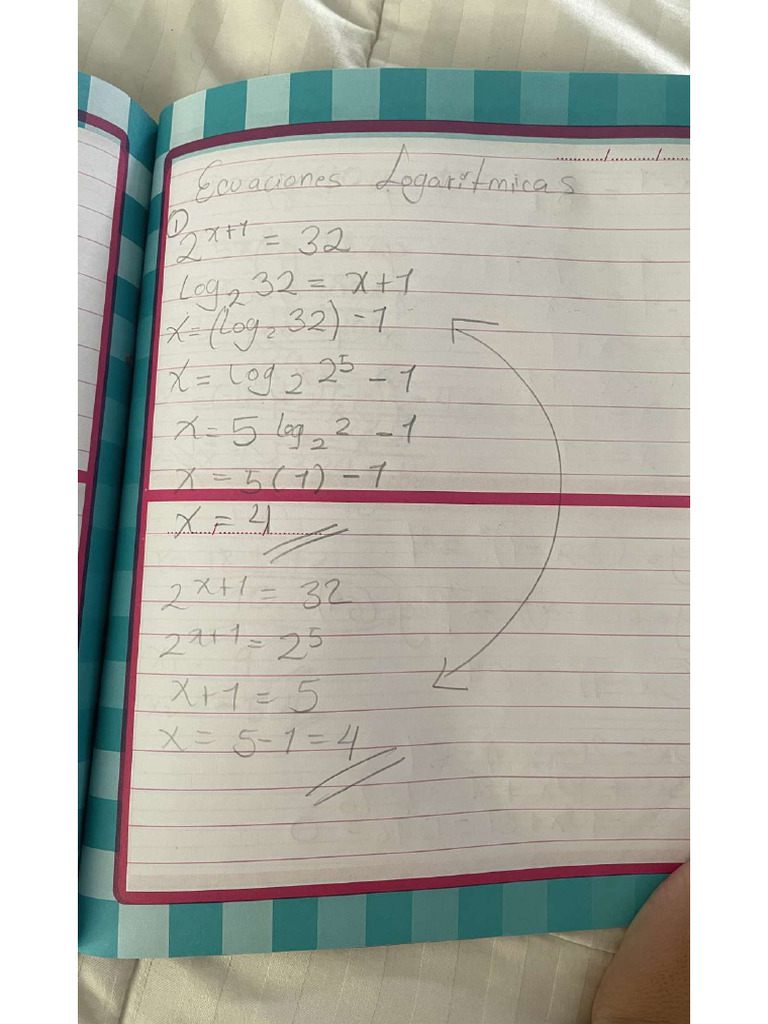 Ecuaciones Logarítmicas
①
2^{x+1} = 32
log₂ 32 = x+1
x = (log₂ 32) - 1
x = log₂ 2⁵ - 1
x = 5 log₂ 2 - 1
x = 5(1) - 1
x = 4
2^{x+1} = 32
2^{x+1} = 2⁵
x+1 = 5
x = 5-1 = 4